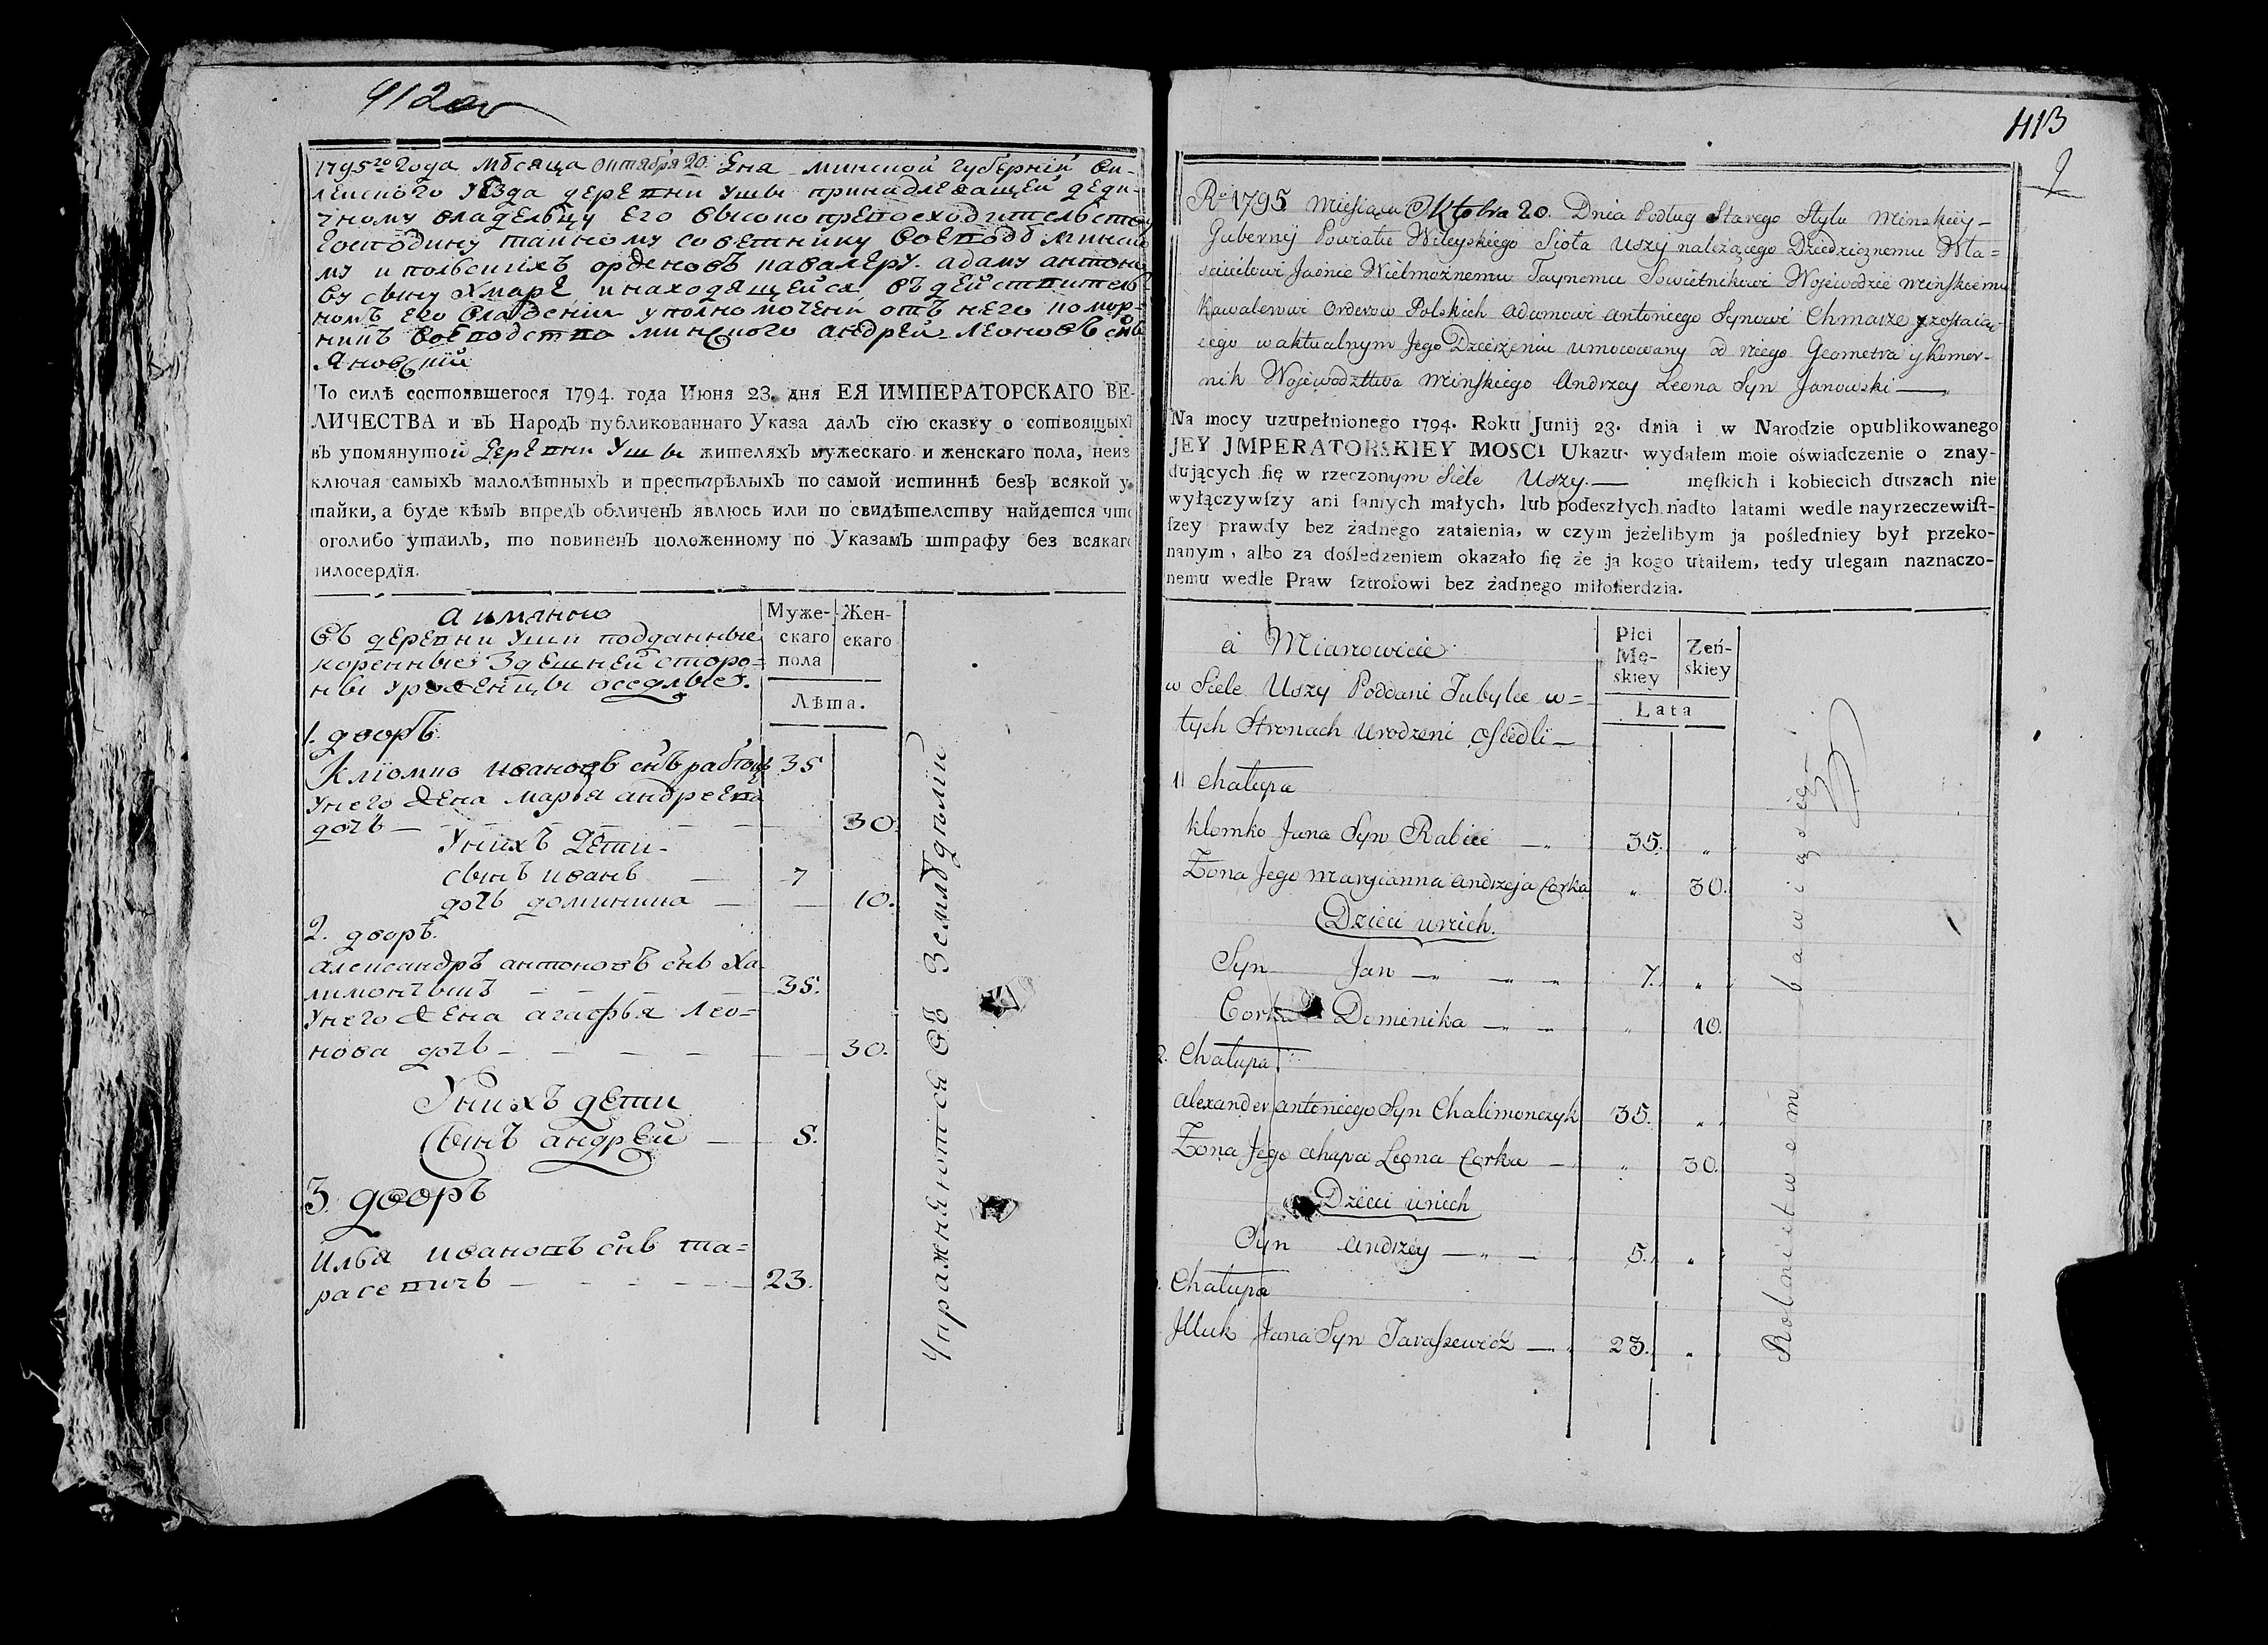 412 об
1795го Года мѣсяца октября 20. дня минской губерніи ви-
лейского уезда деревни Ушы принадлежащей деди-
чному владельцу Его высокопревосходительству
Господину тайному советнику воеводѣ минско
му и польскихъ орденовъ кавалеру адаму антоно
ву сыну Хмаре и находящейся въ действитель
номъ его владении уполномочени отъ него комор-
никъ воеводства минского андрей леоновъ снъ
Яновскій
По силѣ состоявшегося 1794. года Июня 23. дня ЕЯ ИМПЕРАТОРСКАГО ВЕ-
ЛИЧЕСТВА и въ Народъ публикованнаго Указа далъ сїю сказку о состоящихъ
въ упомянутой деревни Ушы жителяхъ мужескаго и женскаго пола, неиз
ключая самыхъ малолѣтныхъ и престарѣлыхъ по самой истиннѣ безъ всякой у
тайки, а буде кѣмъ впредь обличенъ явлюсь или по свидѣтелству найдется что
оголибо утаилъ, то повиненъ положенному по Указамъ штрафу без всякаго
милосердїя.
а имянно
Муже-
скаго
пола
Жен-
скаго
Лѣта.
Въ деревни Ушы подданные
коренные здешней сторо-
ны уроженцы оседлые.
1. дворъ.
Клiомко ивановъ снъ рабецъ 35
у него жена марья андреева
дочь — 30.
у нихъ дети.
сынъ иванъ — 7
дочь доминика — 10.
2. дворъ.
александръ антоновъ снъ ха-
лимончыкъ — 35.
у него жена агафья лео-
нова дочь — 30.
У нихъ дети
сынъ андрей — 5.
3 дворъ
илья ивановъ снъ та-
расевичъ — 23.
Упражняются въ земледѣліи
413
Rº 1795 Miesiąca Oktobra 20. Dnia Podług Starego Stylu Minskiey
Gubernij Powiatu Wileyskiego Sioła Uszy należącego Dziedzicznemu Wła-
scicielowi Jasnie Wielmożnemu Taynemu Sowietnikowi Wojewodzie Minskiemu
Kawalerowi Orderow Polskich Adamowi Antoniego Synowi Chmarze y zostaiąc-
cego w aktualnym Jego Dzierżeniu umocowany od niego Geometra y Komor-
nik Wojewodztwa Minskiego Andrzey Leona Syn Janowski —
Na mocy uzupełnionego 1794. Roku Junij 23. dnia i w Narodzie opublikowanego
JEY JMPERATORSKIEY MOSCI Ukazu. wydałem moie oświadczenie o znay-
dujących się w rzeczonym Siele Uszy. — męskich i kobiecich duszach nie
wyłączywszy ani samych małych, lub podeszłych nadto latami wedle nayrzeczewist-
szey prawdy bez żadnego zataienia, w czym jeżelibym ja poślednięy był przeko-
nanym, albo za dośledzeniem okazało się że ja kogo utaiłem, tedy ulegam naznaczo-
nemu wedle Praw sztrofowi bez żadnego miłosierdzia.
a Mianowicie
Płci
Mę-
skiey
Zeń-
skiey
Lata
w Siele Uszy Poddani Tubylce w=
tych Stronach Urodzeni Osiedli —
1 Chałupa
Klomko Jana Syn Rabiec — 35. „
Zona Jego Maryianna Andrzeja Corka „ 30.
Dzieci u nich.
Syn Jan — 7. „
Corka Dominika — „ 10.
2. Chałupa
Alexander Antoniego Syn Chalimonczyk 35. „
Zona Jego Ahapa Leona Corka — „ 30.
Dzieci u nich
Syn Andrzey — 5. „
Chałupa
Jlluk Jana Syn Taraszewicz — 23. „
Rolnictwem bawią się